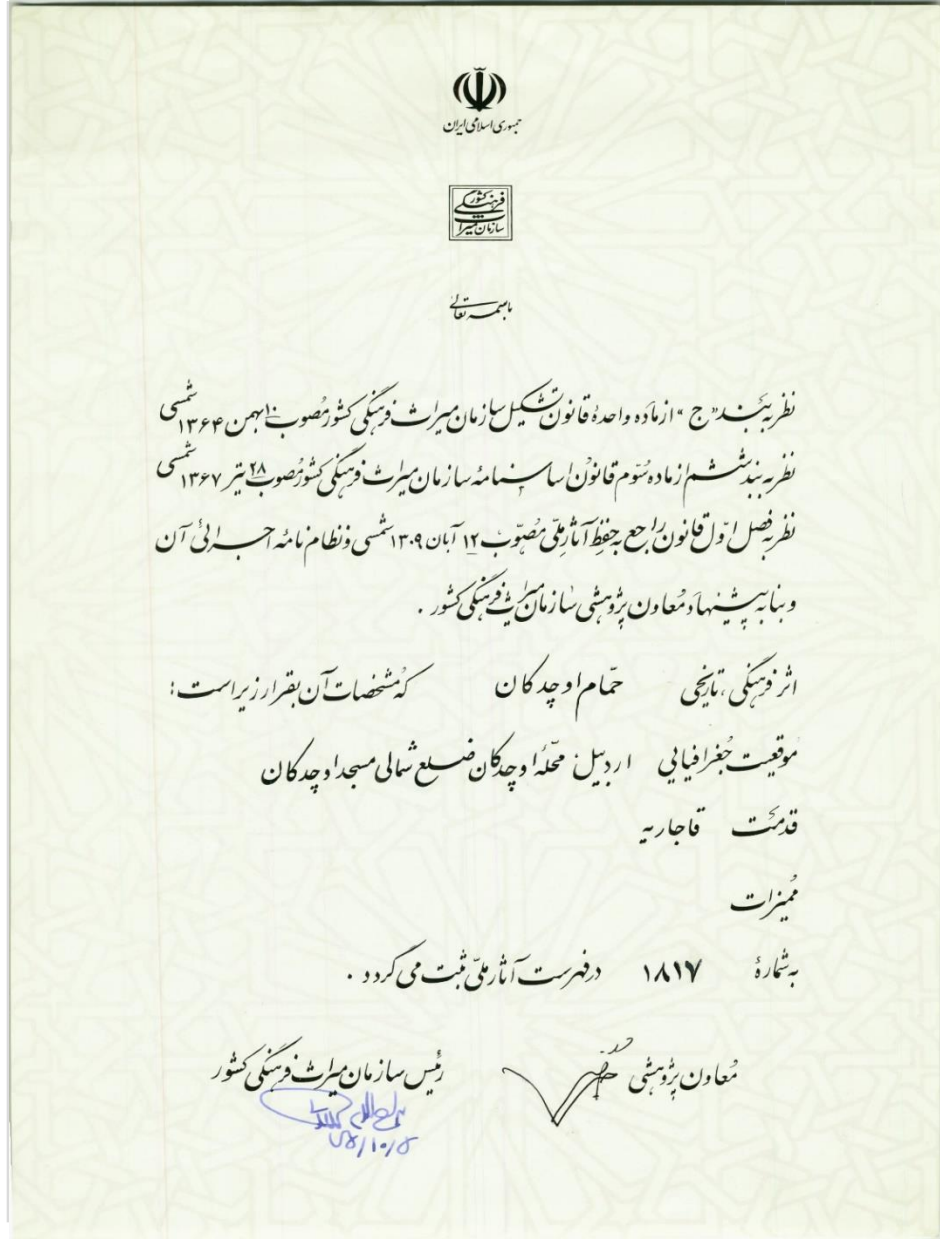 جمهوری اسلامی ایران
سازمان میراث فرهنگی کشور
باسمه تعالی
نظر به بند "ج" از ماده واحدهٔ قانون تشکیل سازمان میراث فرهنگی کشور مصوب ۱۰ بهمن ۱۳۶۴ شمسی
نظر به بند ششم از ماده سوم قانون اساسنامهٔ سازمان میراث فرهنگی کشور مصوب ۲۸ تیر ۱۳۶۷ شمسی
نظر به فصل اول قانون راجع به حفظ آثار ملّی مصوّب ۱۲ آبان ۱۳۰۹ شمسی و نظام نامهٔ اجرائی آن
و بنا به پیشنهاد معاون پژوهشی سازمان میراث فرهنگی کشور .
اثر فرهنگی ، تاریخی حمّام اوچدکان که مشخصات آن بقرار زیر است :
موقعیت جغرافیایی اردبیل محلّهٔ اوچدکان ضلع شمالی مسجد اوچدکان
قدمت قاجاریه
ممیزات
به شمارهٔ ۱۸۱۷ در فهرست آثار ملّی ثبت می گردد .
معاون پژوهشی
رئیس سازمان میراث فرهنگی کشور